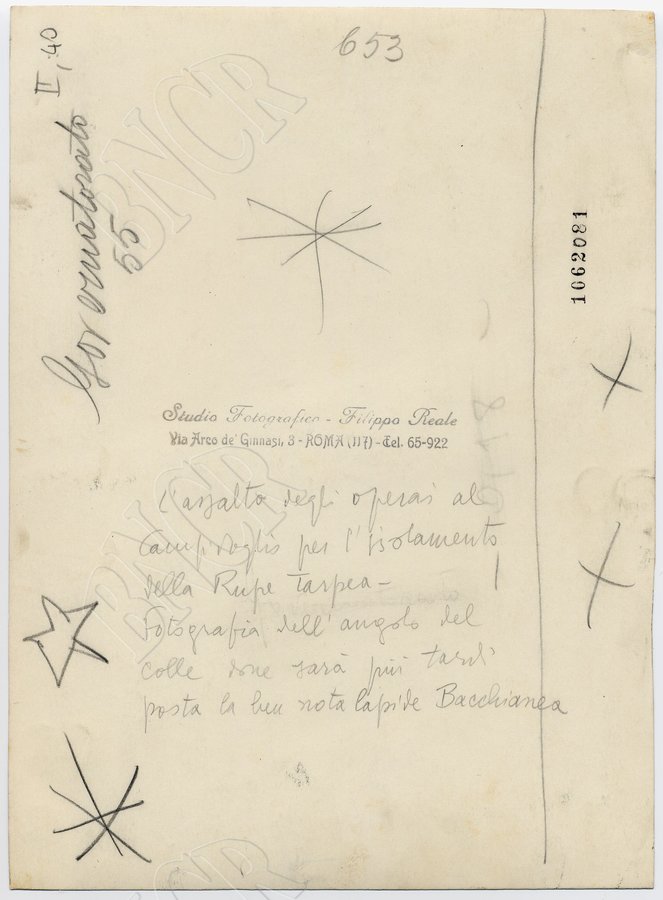 653
II, 40
Governatorato
55
1062081
Studio Fotografico - Filippo Reale
Via Arco de' Ginnasi, 3 - ROMA (117) - Tel. 65-922
L'assalto degli operai al
Campidoglio per l'isolamento
della Rupe Tarpea -
Fotografia dell'angolo del
colle dove sarà più tardi
posta la ben nota lapide Bacchianea
BNCR
BNCR
BNCR